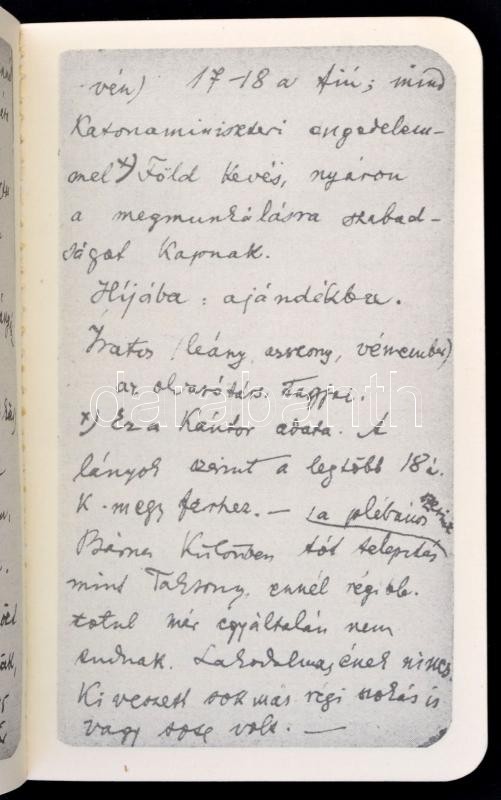 vén) 17-18 a fiú; mind
Katonaminiszteri engedelem-
mel x) Föld kevés, nyáron
a megmunkálásra szabad-
ságot kapnak.
Híjába: ajándékba.
(leány, asszony, vénember)
az olvasótárs. tagjai.
x) Ez a Kántor adata. A
lányok szerint a legtöbb 18 é.
k. megy férhez. — (a plébános
szerint
Bárna különben tót telepítés
mint Taksony, ennél régibb.
totul már egyáltalán nem
tudnak. Lakodalmas ének nincs.
Kiveszett sok más régi szokás is
vagy sose volt. —
darabanth